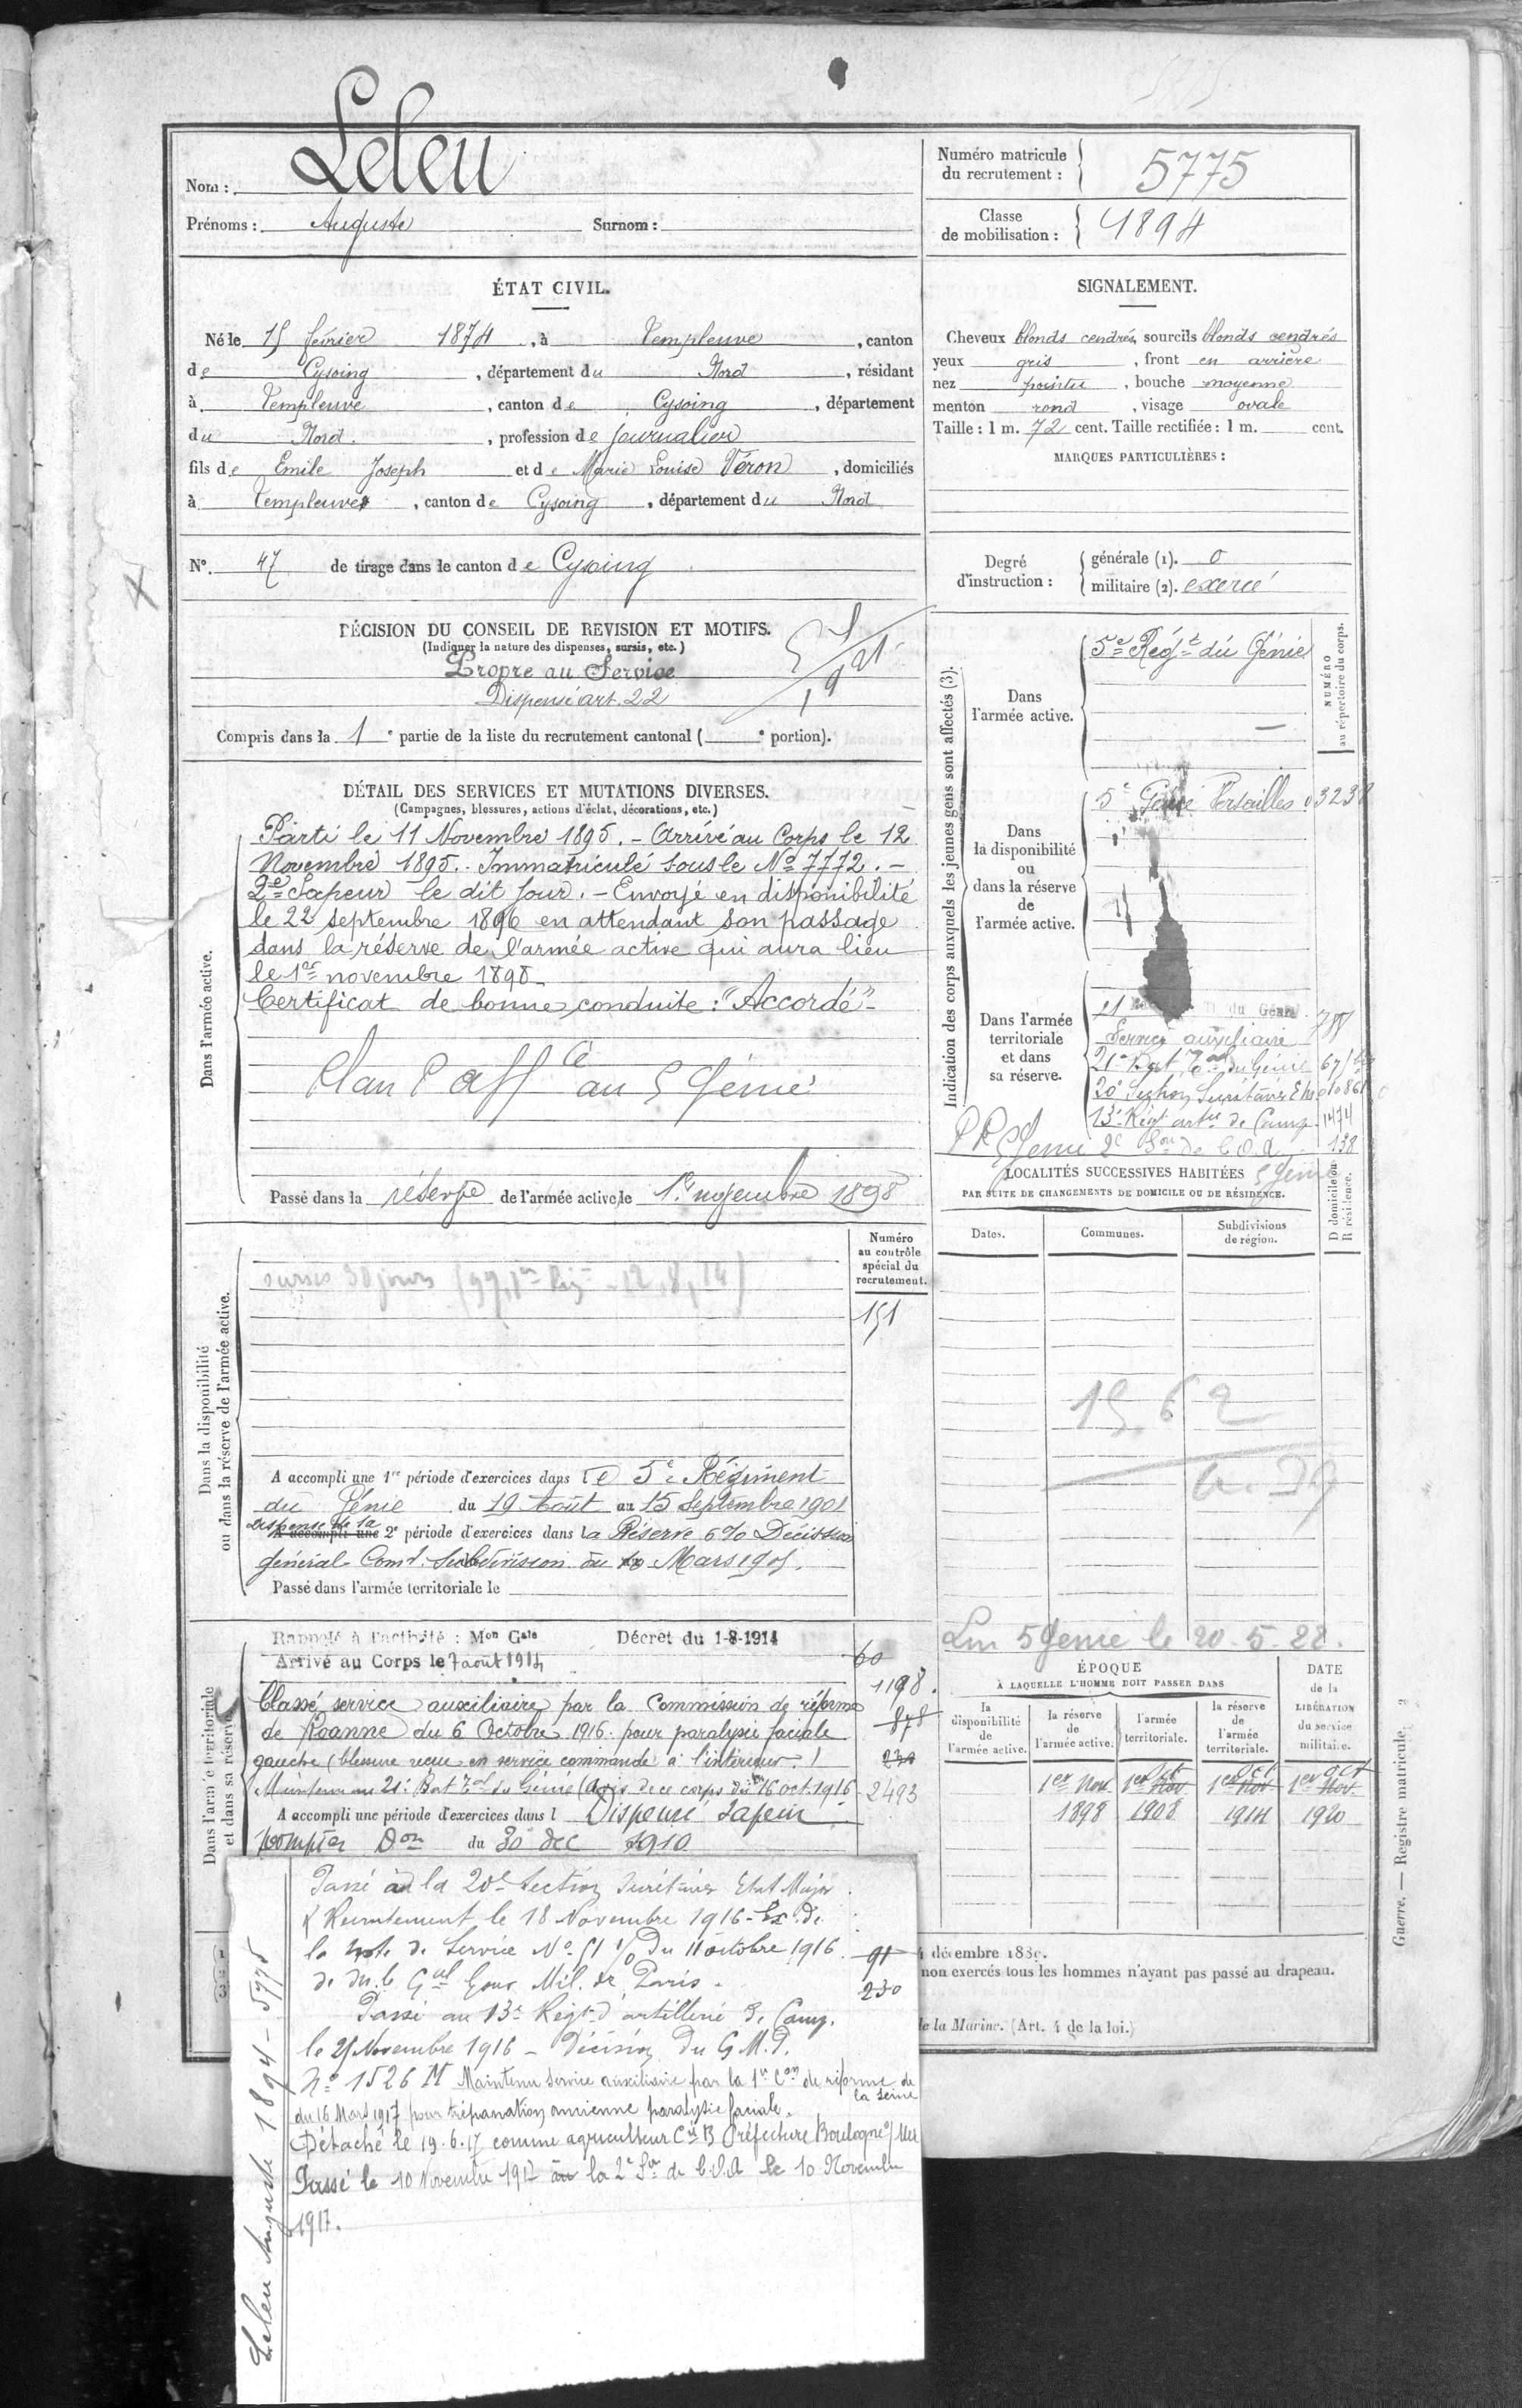 Nom : Leleu
Prénoms : Auguste Surnom :
Numéro matricule du recrutement : 5775
Classe de mobilisation : 1894
ÉTAT CIVIL.
Né le 15 février 1874, à Templeuve, canton
de Cysoing, département du Nord, résidant
à Templeuve, canton de Cysoing, département
du Nord, profession de journalier
fils de Emile Joseph et de Marie Louise Véron, domiciliés
à Templeuve, canton de Cysoing, département du Nord
N° 47 de tirage dans le canton de Cysoing
SIGNALEMENT.
Cheveux blonds cendrés, sourcils blonds cendrés
yeux gris, front en arrière
nez pointu, bouche moyenne
menton rond, visage ovale
Taille : 1 m. 72 cent. Taille rectifiée : 1 m. cent.
MARQUES PARTICULIÈRES :
Degré d'instruction : générale (1). 0
militaire (2). exercé
DÉCISION DU CONSEIL DE REVISION ET MOTIFS.
(Indiquer la nature des dispenses, sursis, etc.)
Propre au Service
Dispensé art. 22
Compris dans la 1e partie de la liste du recrutement cantonal ( e portion).
DÉTAIL DES SERVICES ET MUTATIONS DIVERSES.
(Campagnes, blessures, actions d'éclat, décorations, etc.)
Dans l'armée active.
Parti le 11 Novembre 1895. - Arrivé au Corps le 12
Novembre 1895. Immatriculé sous le No 7772. -
2e Sapeur le dit jour. - Envoyé en disponibilité
le 22 septembre 1896 en attendant son passage
dans la réserve de l'armée active qui aura lieu
le 1er novembre 1898
Certificat de bonne conduite : "Accordé"
Plan P affcé au 5 Génie
Passé dans la réserve de l'armée active le 1er novembre 1898
Indication des corps auxquels les jeunes gens sont affectés (3).
NUMÉRO au répertoire du corps.
Dans l'armée active.
5e Régt du Génie
Dans la disponibilité ou dans la réserve de l'armée active.
5e Génie Versailles
Dans l'armée territoriale et dans sa réserve.
21 du Génie
Service auxiliaire
21e Bat Tal du Génie
20e Section Secrétaires
13e Régt artie de Camp. 1474
2e Son de C.O.A. 138
5 Génie
LOCALITÉS SUCCESSIVES HABITÉES
PAR SUITE DE CHANGEMENTS DE DOMICILE OU DE RÉSIDENCE.
Dates. Communes. Subdivisions de région. D domicile ou R résidence.
Dans la disponibilité ou dans la réserve de l'armée active.
Numéro au contrôle spécial du recrutement.
sursis 30 jours
151
A accompli une 1re période d'exercices dans le 5e Régiment
du Génie du 19 Août au 15 Septembre 1901
Dispensé de la
A accompli une 2e période d'exercices dans la Réserve 6% Décision
général Comt Subdivision du Mars 1905.
Passé dans l'armée territoriale le
Dans l'armée territoriale et dans sa réserve
Rappelé à l'activité : Mon Gale Décret du 1-8-1914
Arrivé au Corps le 7 août 1914
Classé service auxiliaire par la Commission de réforme
de Roanne du 6 Octobre 1916 pour paralysie faciale
gauche (blessure reçue en service commandé à l'intérieur.)
Maintenu au 21e Bat Tal du Génie (Avis de ce corps du 16 oct. 1916
A accompli une période d'exercices dans l Dispensé Sapeur
pompier Don du 30 dec 1910
60
1198.
878
230
2493
Lin 5 Génie le 20-5-22.
ÉPOQUE
À LAQUELLE L'HOMME DOIT PASSER DANS
DATE de la LIBÉRATION du service militaire.
la disponibilité de l'armée active.
la réserve de l'armée active.
l'armée territoriale.
la réserve de l'armée territoriale.
1er Nov. 1898
1er Nov Oct 1908
1er Nov Oct 1914
1er Nov. oct 1920
Passé à la 20e Section Secrétaires Etat Major
& Recrutement le 18 Novembre 1916 - Ex. de
la note de Service No 51 1/0 du 11 octobre 1916.
de du. le Gal Gouv. Mil. de Paris.
91
230
Passé au 13e Régt d'artillerie de Camp.
le 25 Novembre 1916 - Décision du G.M.P.
No 1526 M Maintenu service auxiliaire par la 1re Con de réforme de la Seine
du 16 Mars 1917 pour trépanation ancienne paralysie faciale.
Détaché le 19.6.17 comme agriculteur Cie B Préfecture Boulogne s/ Mer
Passé le 10 Novembre 1917 à la 2e Son de C.O.A le 10 Novembre
1917.
Leleu Auguste 1894 - 5775
décembre 188
non exercés tous les hommes n'ayant pas passé au drapeau.
de la Marine. (Art. 4 de la loi.)
Guerre. — Registre matricule. 2